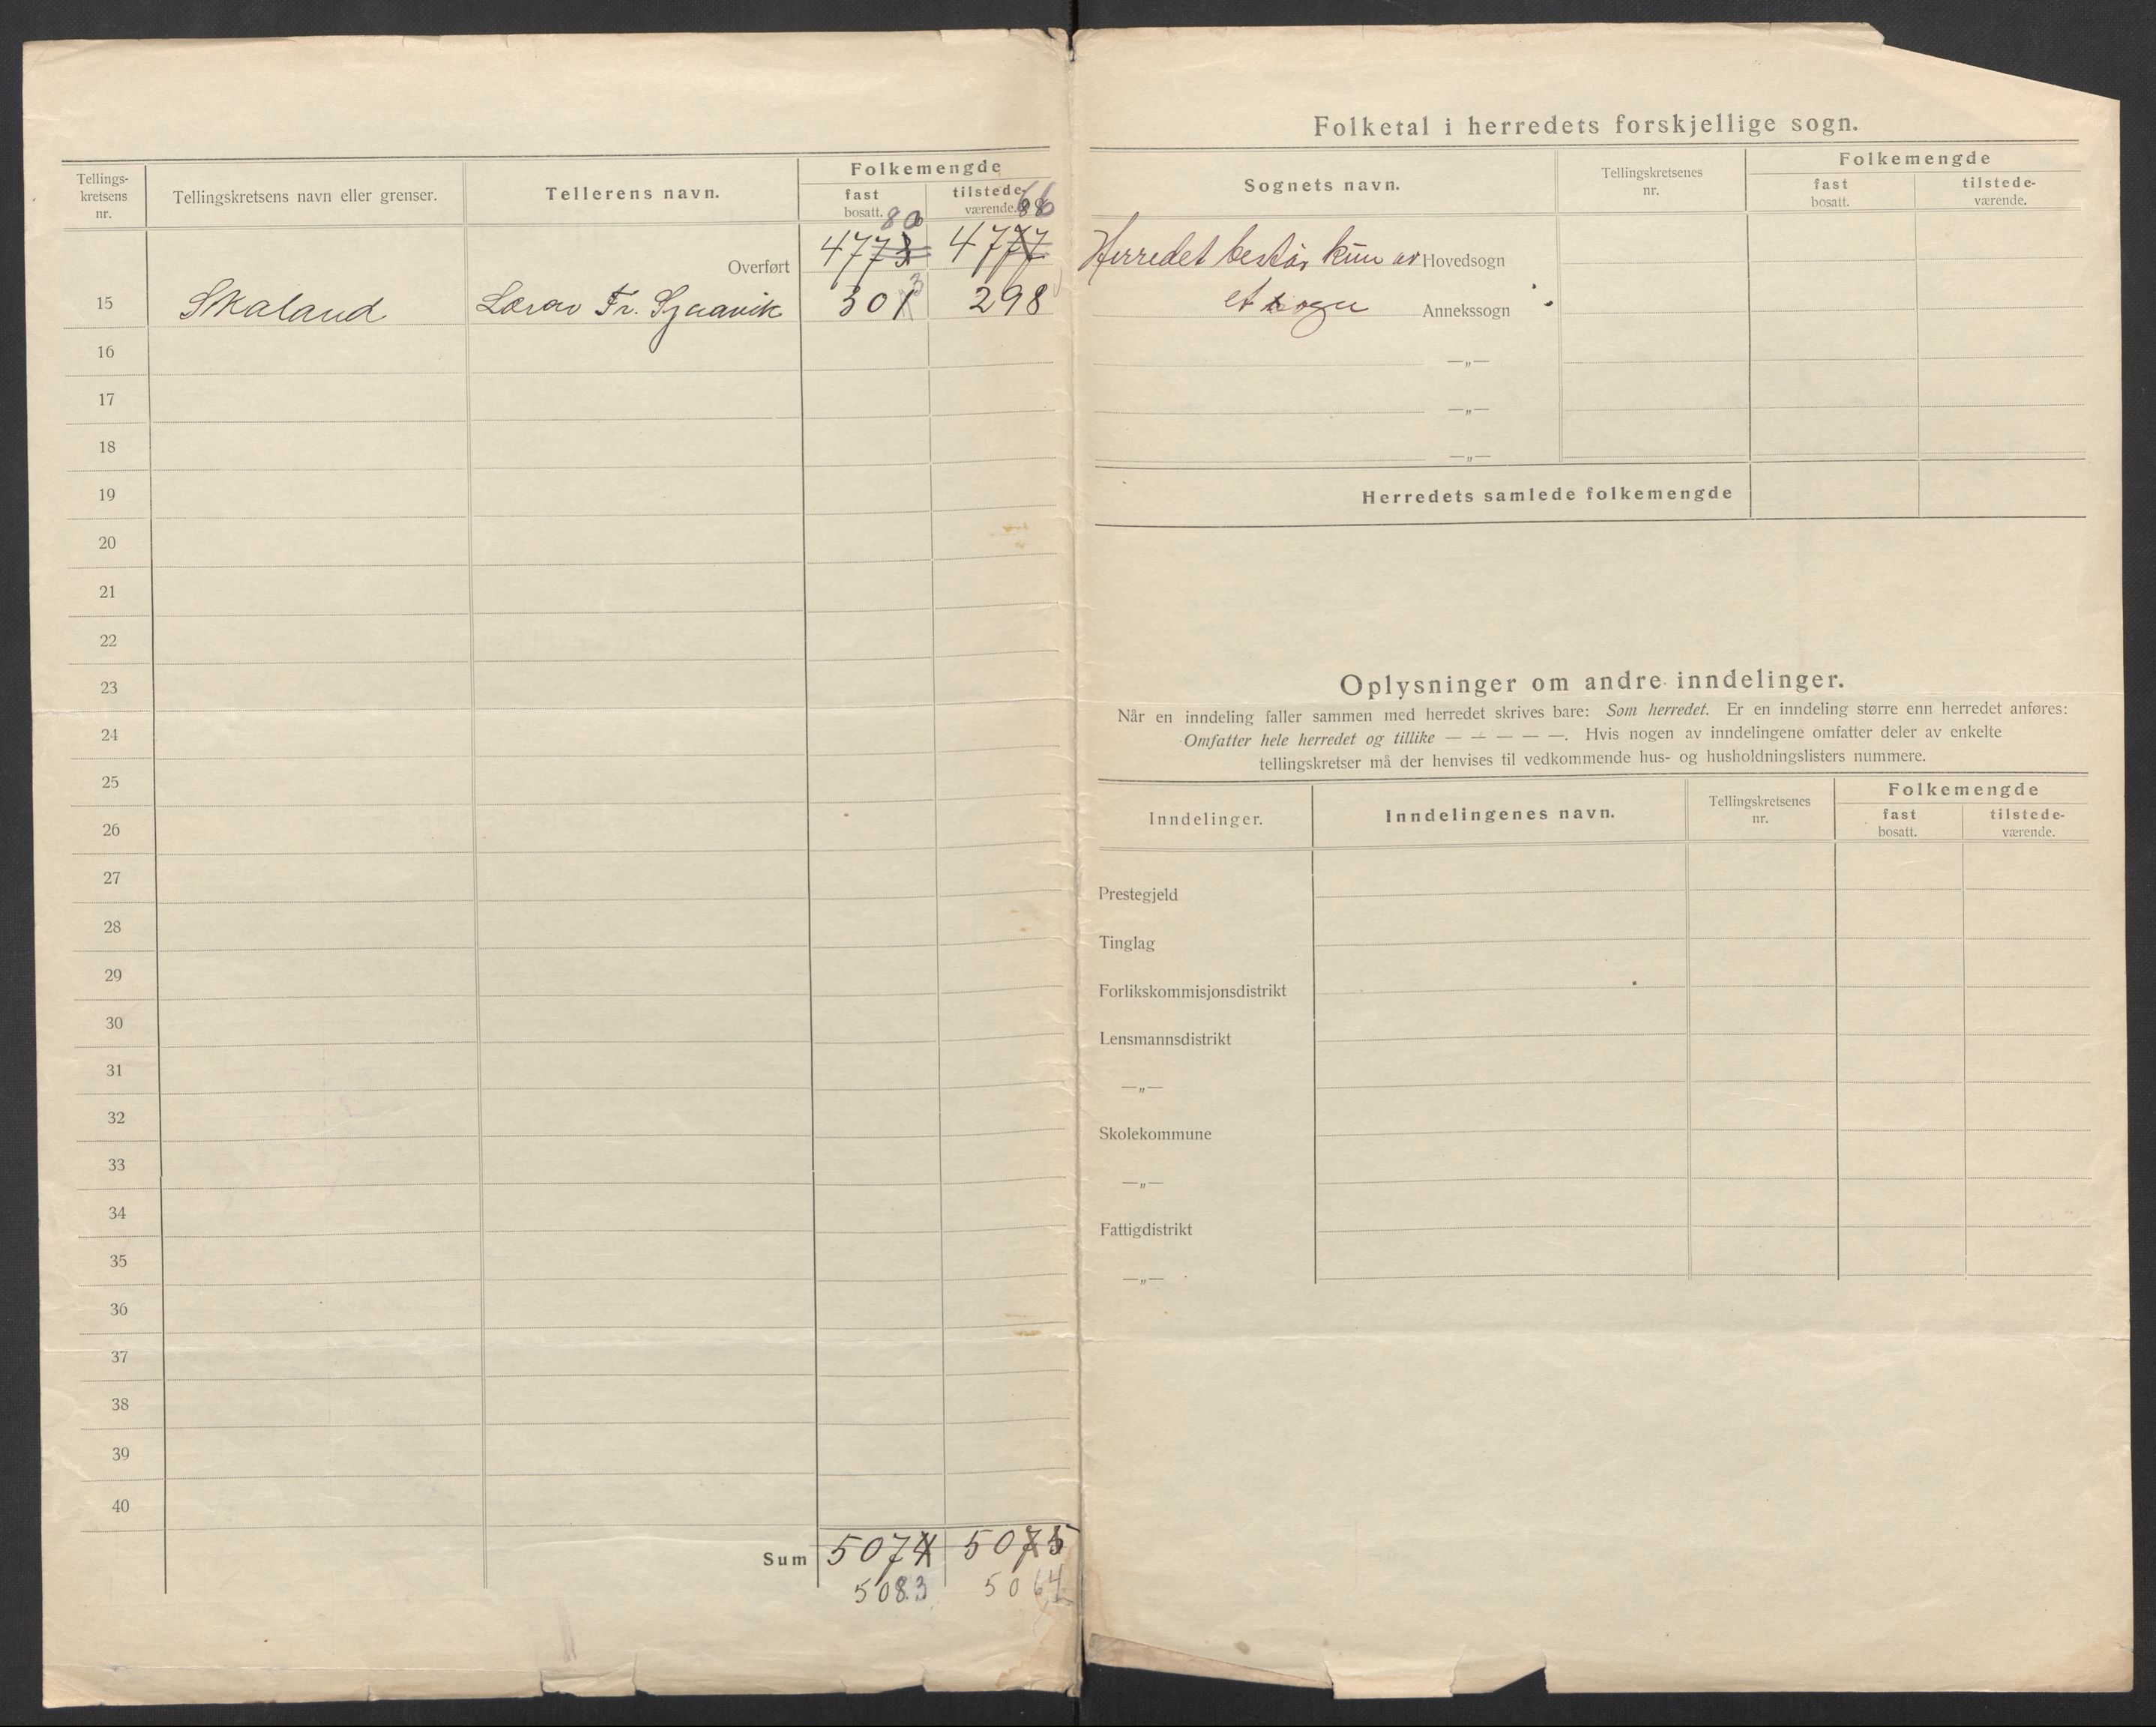 Tellings-
kretsens
nr.
Tellingskretsens navn eller grenser.
Tellerens navn.
Folkemengde
fast
bosatt.
tilstede-
værende.
80
66
Overført
4773
4777
15
Skaland
Lærer Fr. Sjaavik
301
3
298
16
17
18
19
20
21
22
23
24
25
26
27
28
29
30
31
32
33
34
35
36
37
38
39
40
Sum
5074
5075
5083
5064
Folketal i herredets forskjellige sogn.
Sognets navn.
Tellingskretsenes
nr.
Folkemengde
fast
bosatt.
tilstede-
værende.
Herredet består kun av Hovedsogn
et sogn Annekssogn
—„—
—„—
—„—
Herredets samlede folkemengde
Oplysninger om andre inndelinger.
Når en inndeling faller sammen med herredet skrives bare: Som herredet. Er en inndeling større enn herredet anføres:
Omfatter hele herredet og tillike — — — — —. Hvis nogen av inndelingene omfatter deler av enkelte
tellingskretser må der henvises til vedkommende hus- og husholdningslisters nummere.
Inndelinger.
Inndelingenes navn.
Tellingskretsenes
nr.
Folkemengde
fast
bosatt.
tilstede-
værende.
Prestegjeld
Tinglag
Forlikskommisjonsdistrikt
Lensmannsdistrikt
—„—
Skolekommune
—„—
Fattigdistrikt
—„—